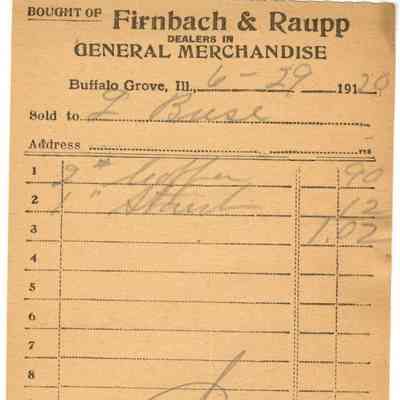 BOUGHT OF Firnbach & Raupp
DEALERS IN
GENERAL MERCHANDISE
Buffalo Grove, Ill., 6-29 191 20
Sold to L Buse
Address
1 2 # Coffee 90
2 1 " Starch 12
3 1.02
4
5
6
7
8